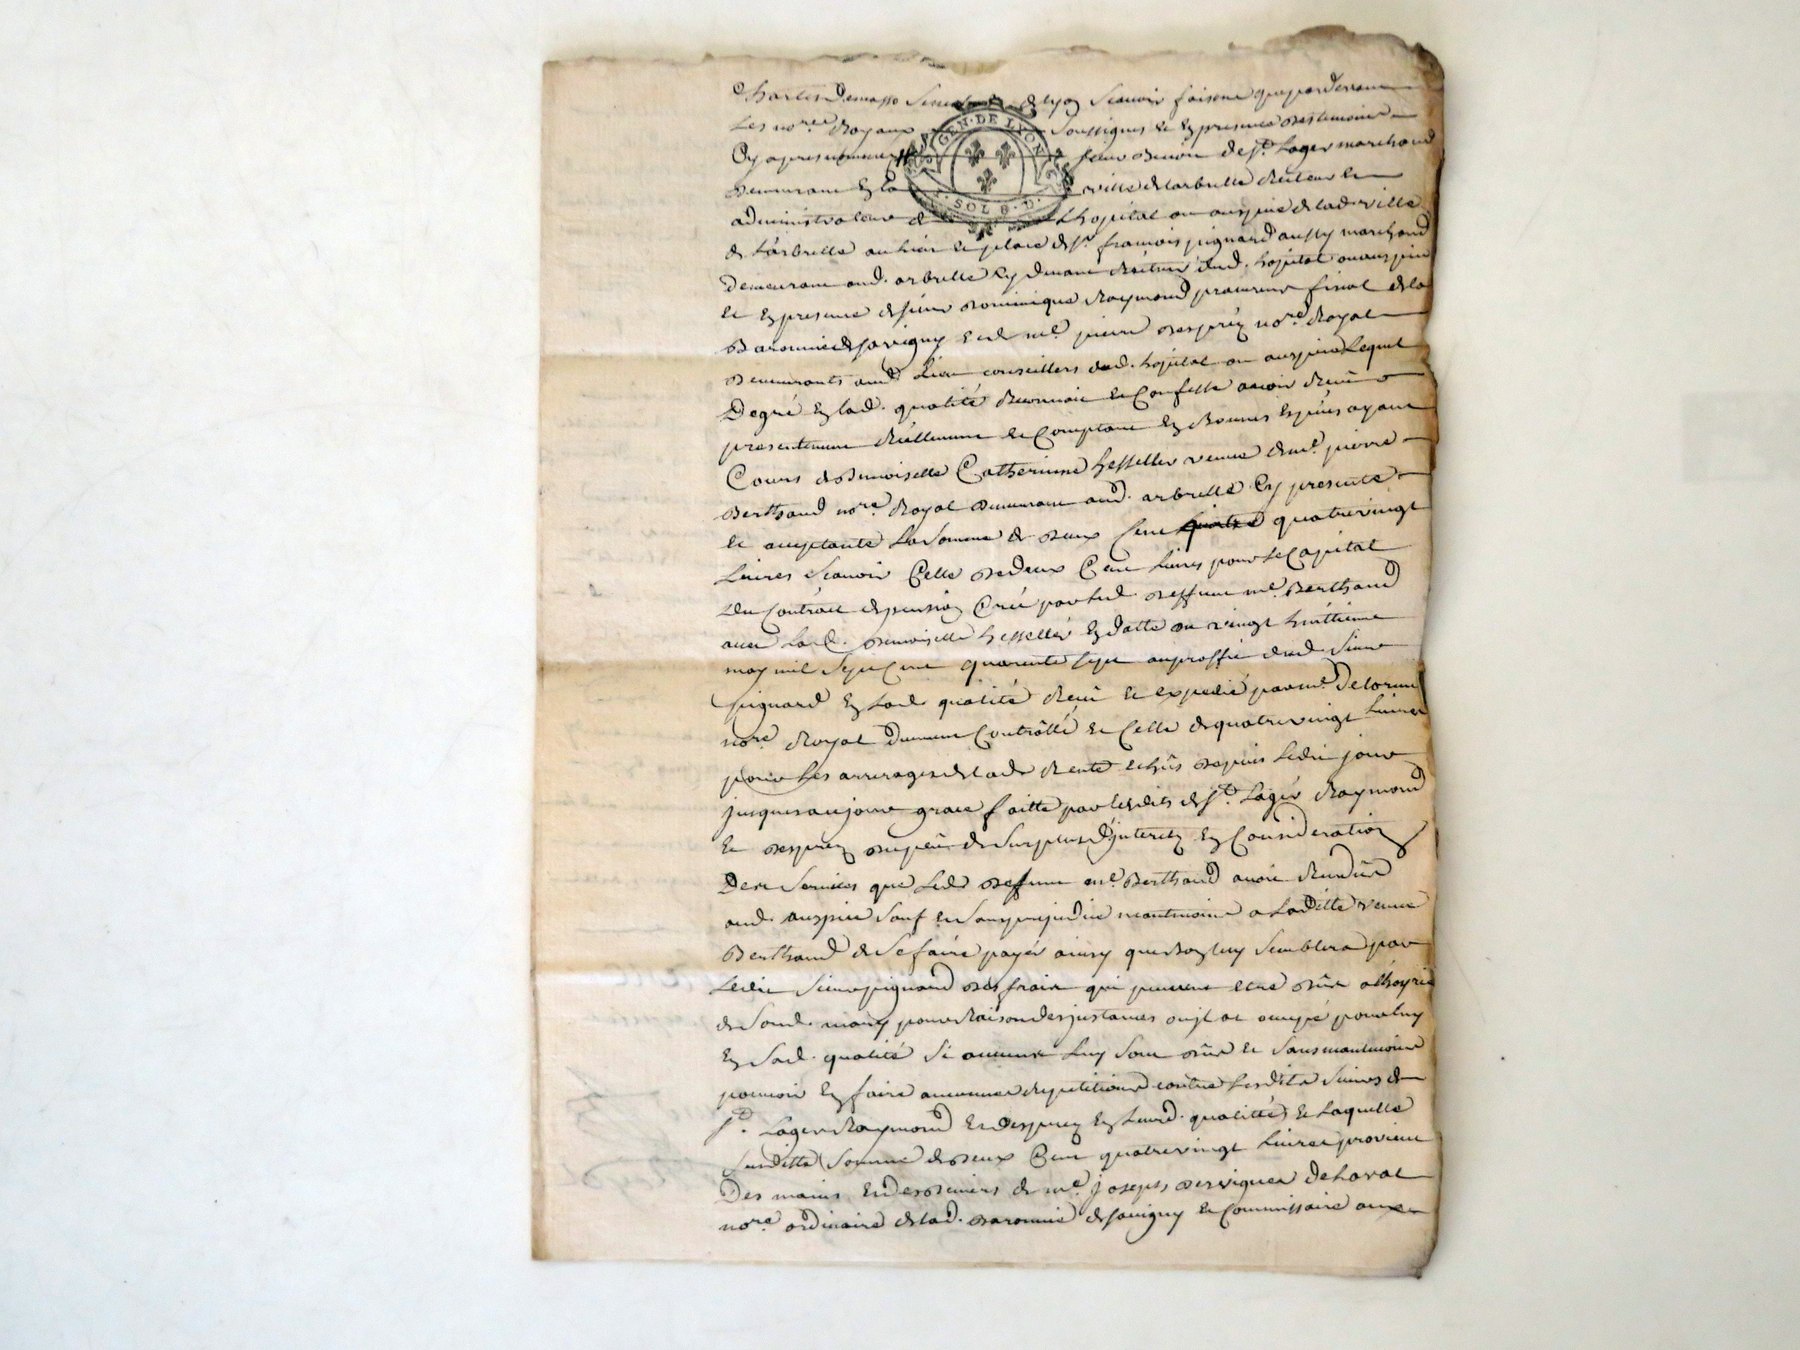 Charles Demasso Senechal de lyon Scavoir faisons que pardevant
Les no.res Royaux soussignes et En presence des temoins
Cy apres nommez sieur de S.t Lager marchand
Demeurant En la ville de larbresle Recteur et
administrateur de L'hopital ou auspice de lad. ville
de L'arbresle au lieu et place de S.r francois pignard aussy marchand
Demeurant aud. arbresle Cy devant Recteur dud. hopital ou auspice
et En presence de sieur Dominique Raymond procureur fiscal de la
Baronnie de Savigny et de m.e pierre Desprez no.re Royal
Demeurants aud. Lieu conseillers dud. hopital ou auspice Lequel
De gré En lad. qualité Reconnoit et Confesse avoir Receu
presentement Réellement et Comptant En Bonnes Espéces ayant
Cours de Demoiselle Catherinne hesseller veuve de m.e pierre
Berthaud no.re Royal Demeurant aud. arbresle Cy presente
et acceptante La Somme de Deux Cent quatrevingt
Livres Scavoir Celle De deux Cent Livres pour Le Capital
du Contract de pension Créé par led. Deffunt m.e Berthaud
avec Lad. Demoiselle hesseller En datte du vingt huittieme
may mil Sept Cent quarente sept au proffit dud. Sieur
pignard En lad. qualité Receu et expedié par m.e Delorme
no.re Royal Duement Contrôllé et Celle de quatrevingt Livres
pour Les arrerages de lad. Rente echûs Depuis Ledit jour
jusques au jour grace faitte par lesdits de S.t Lager Raymond
et Desprez du peu de Surplus d'jnterets En Consideration
Des Services que Led. Deffunt m.e Berthaud avoit Rendûs
aud. auspice Sauf et Sans prejudice neantmoins a Laditte veuve
Berthaud de Se faire payer ainsy que Bon luy Semblera par
Ledit Sieur pignard Des frais qui peuvent etre Dûs a
de Sond. mary pour Raison des jnstances ou jl at occupé pour luy
En Sad. qualité Si aucuns Luy Sont Dûs et Sans neantmoins
pouvoir En faire aucunes Repetitions contre Lesdits Sieurs de
S.t Lager Raymond et Desprez En Leurd. qualittés et Laquelle
Susditte Somme de Deux Cent quatrevingt Livres provient
Des mains et des Deniers de m.e joseph Dervieux Delaval
no.re ordinaire de lad. Baronnie de Savigny et Commissaire aux
GEN. DE LYON
SOL 8. D.